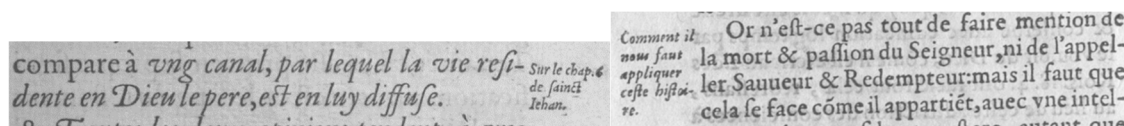 compare à vng canal, par lequel la vie reſi-
dente en Dieu le pere, eſt en luy diffuſe.
Sur le chap. 6
de ſainct
Iehan.
Comment il
nous faut
appliquer
ceſte hiſtoi-
re.
Or n'eſt-ce pas tout de faire mention de
la mort & paſſion du Seigneur, ni de l'appel-
ler Sauueur & Redempteur: mais il faut que
cela ſe face cõme il appartiẽt, auec vne intel-